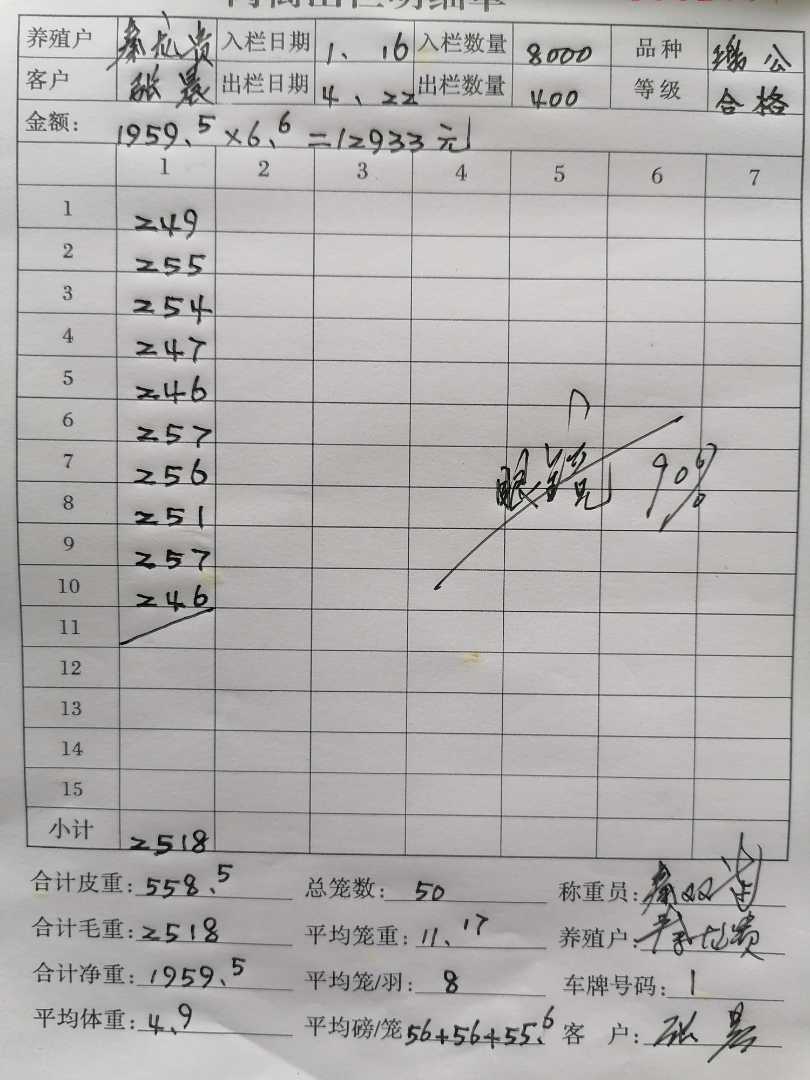 养殖户 秦龙贵 入栏日期 1、16 入栏数量 8000 品种 瑶公
客户 张晨 出栏日期 4、22 出栏数量 400 等级 合格
金额: 1959.5×6.6=12933元
1 2 3 4 5 6 7
1 249
2 255
3 254
4 247
5 246
6 257
7 256 眼镜 90%
8 251
9 257
10 246
11
12
13
14
15
小计 2518
合计皮重: 558.5 总笼数: 50 称重员:
合计毛重: 2518 平均笼重: 11.17 养殖户:
合计净重: 1959.5 平均笼/羽: 8 车牌号码: 1
平均体重: 4.9 平均磅/笼 56+56+55.6 客 户: 张晨